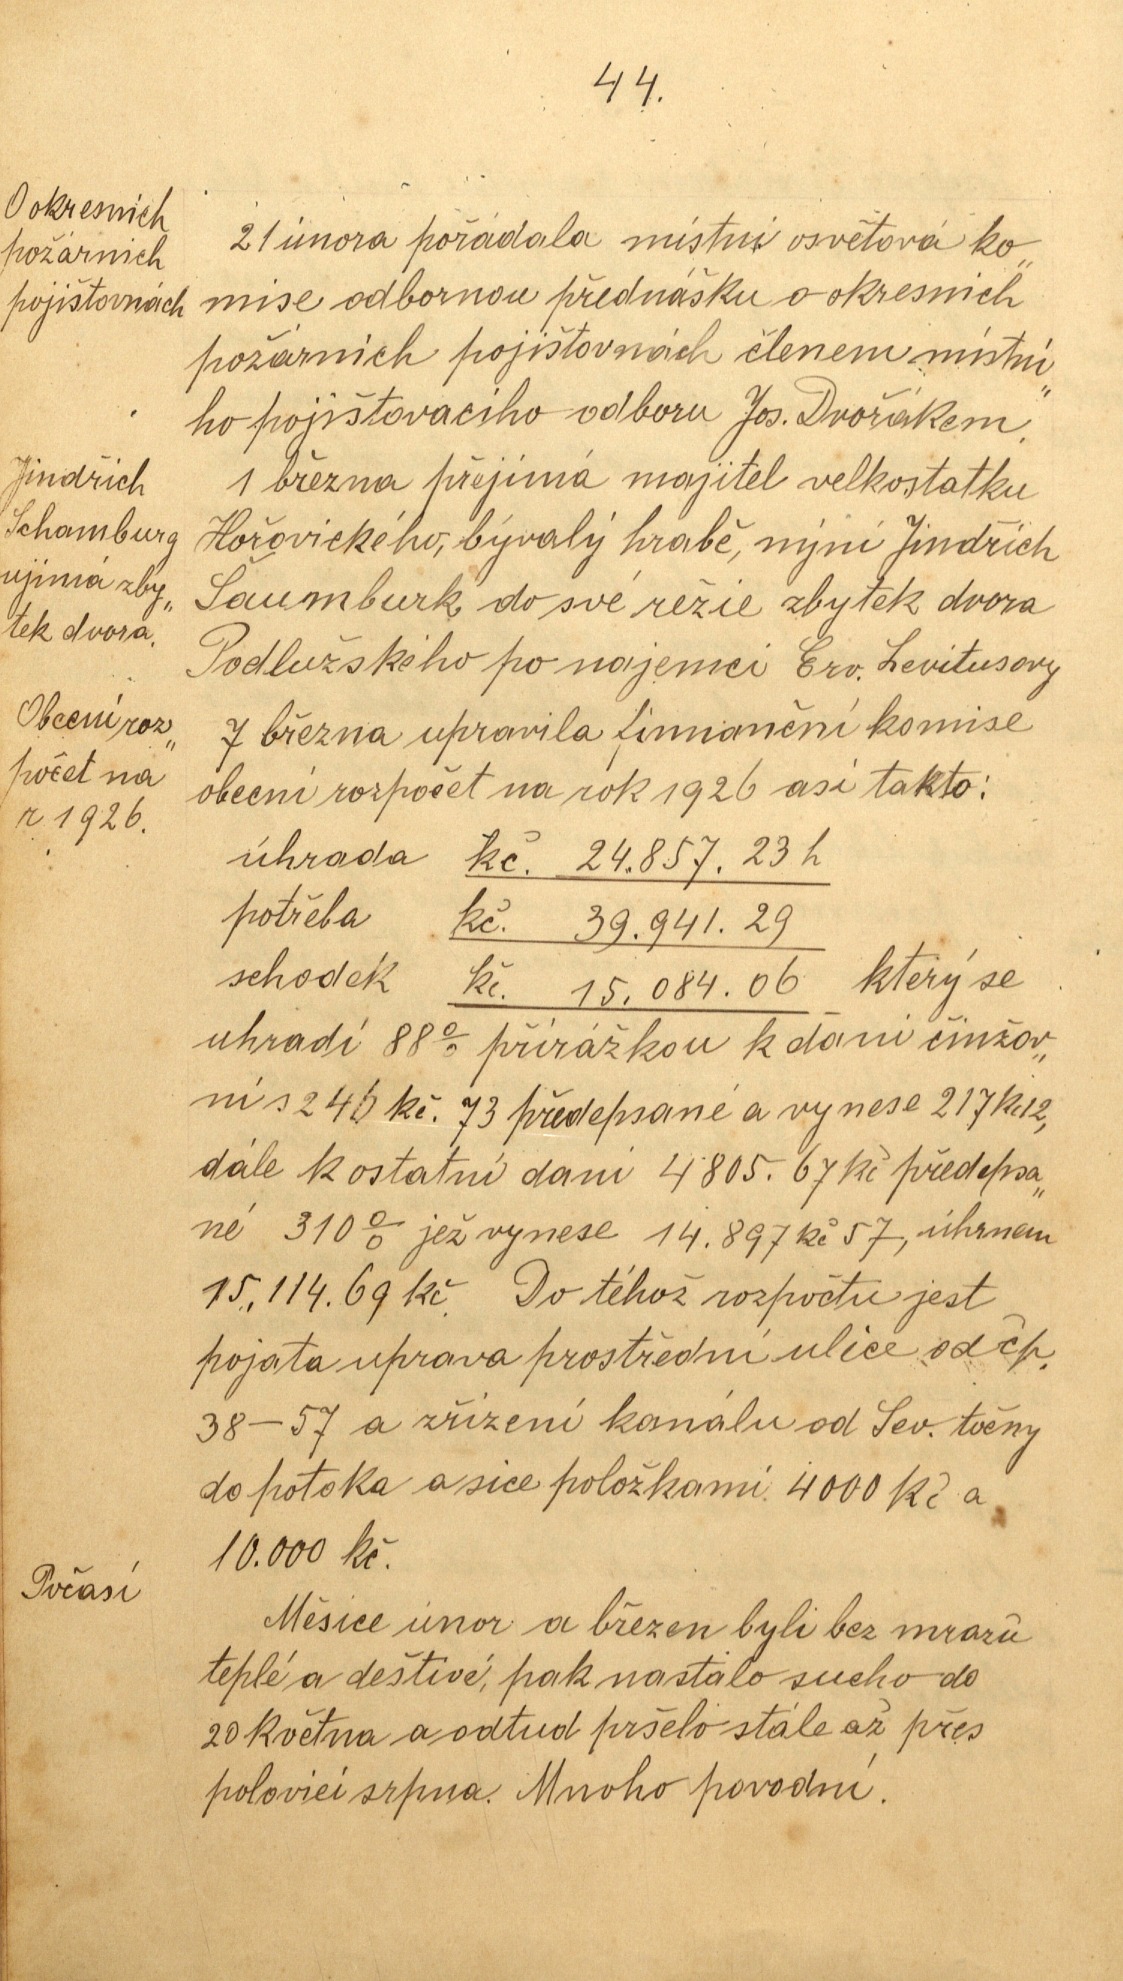 44.
O okresních
požárních
pojišťovnách
21 února pořádala místní osvětová ko„
mise odbornou přednášku o okresních
požárních pojišťovnách členem místní„
ho pojišťovacího odboru Jos. Dvořákem.
Jindřich
Schamburg
ujímá zby„
tek dvora.
1 března přejímá majitel velkostatku
Hořovického, bývalý hrabě, nyní Jindřich
Šaumburk do své režie zbytek dvora
Podlužského po najemci Erv. Levitusovy
Obecní roz„
počet na
r 1926.
7 března upravila finnanční komise
obecní rozpočet na rok 1926 asi takto:
úhrada kč. 24.857. 23 h
potřeba kč. 39.941. 29
schodek kč. 15.084.06 který se
uhradí 88% přirážkou k dani činžov„
ní s 246 kč. 73 předepsané a vynese 217 kč 12,
dále k ostatní dani 4805.67 kč předepsa„
né 310% jež vynese 14.897 kč 57, úhrnem
15.,114.69 kč. Do téhož rozpočtu jest
pojata uprava prostřední ulice od čp.
38–57 a zřízení kanálu od Sev. točny
do potoka a sice položkami 4000 kč a
10.000 kč.
Počasí
Měsice únor a březen byli bez mrazů
teplé a deštivé, pak nastalo sucho do
20 května a odtud pršelo stále až přes
polovici srpna. Mnoho povodní.